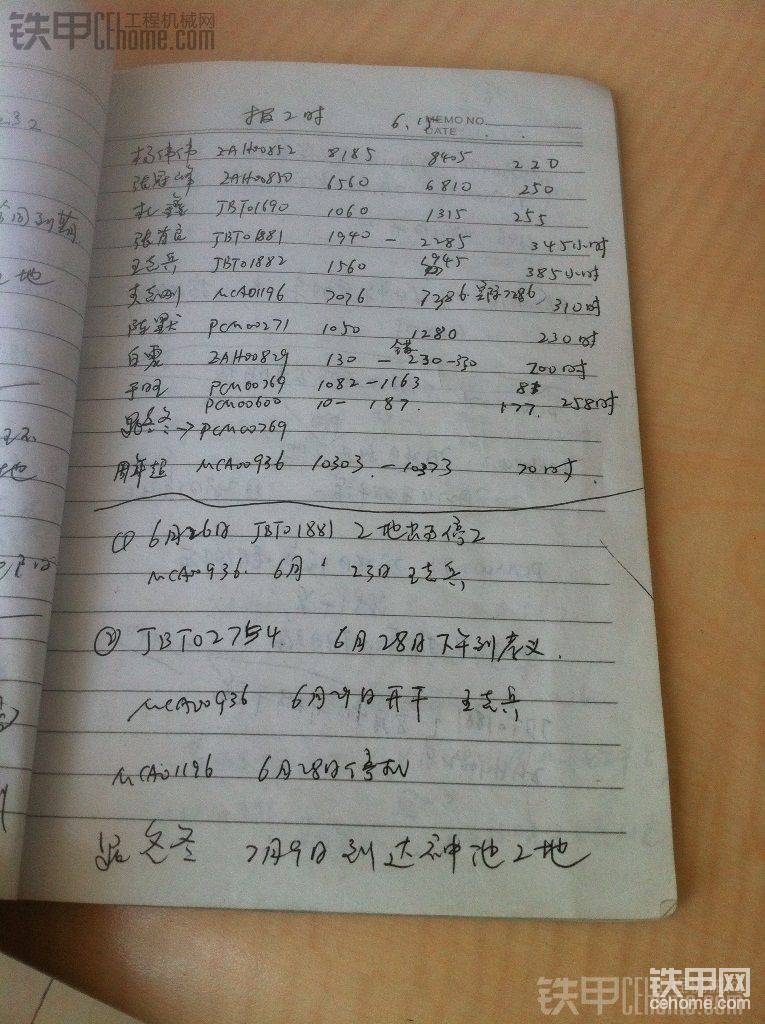 铁甲 工程机械网 CEhome.com
232
报工时 6.15 MEMO NO.
DATE
杨伟伟 ZAH00852 8185 8405 220
张冠峰 ZAH00850 6560 6810 250
JBT01690 1060 1315 255
JBT01881 1940 - 2285 345小时
王志兵 JBT01882 1560 1945 385小时
MCA01196 7076 7286. 7286 310时
陈默 PCM00271 1050 1280 230时
白震 ZAH00829 130 - 230-330 200时
于旺 PCM00769 1082-1163 81
PCM00600 10- 187. 177. 258时
路冬冬→PCM00769
周年超 MCA00936 10303. -10373 70时.
(1) 6月26日 JBT01881 工地 停工
MCA00936. 6月 23日 王志兵
② JBT02754. 6月28日下午到 .
MCA00936 6月29日开平 王志兵
MCA01196 6月28日停机
路冬冬 7月9日到达神池工地
铁甲网
cehome.com